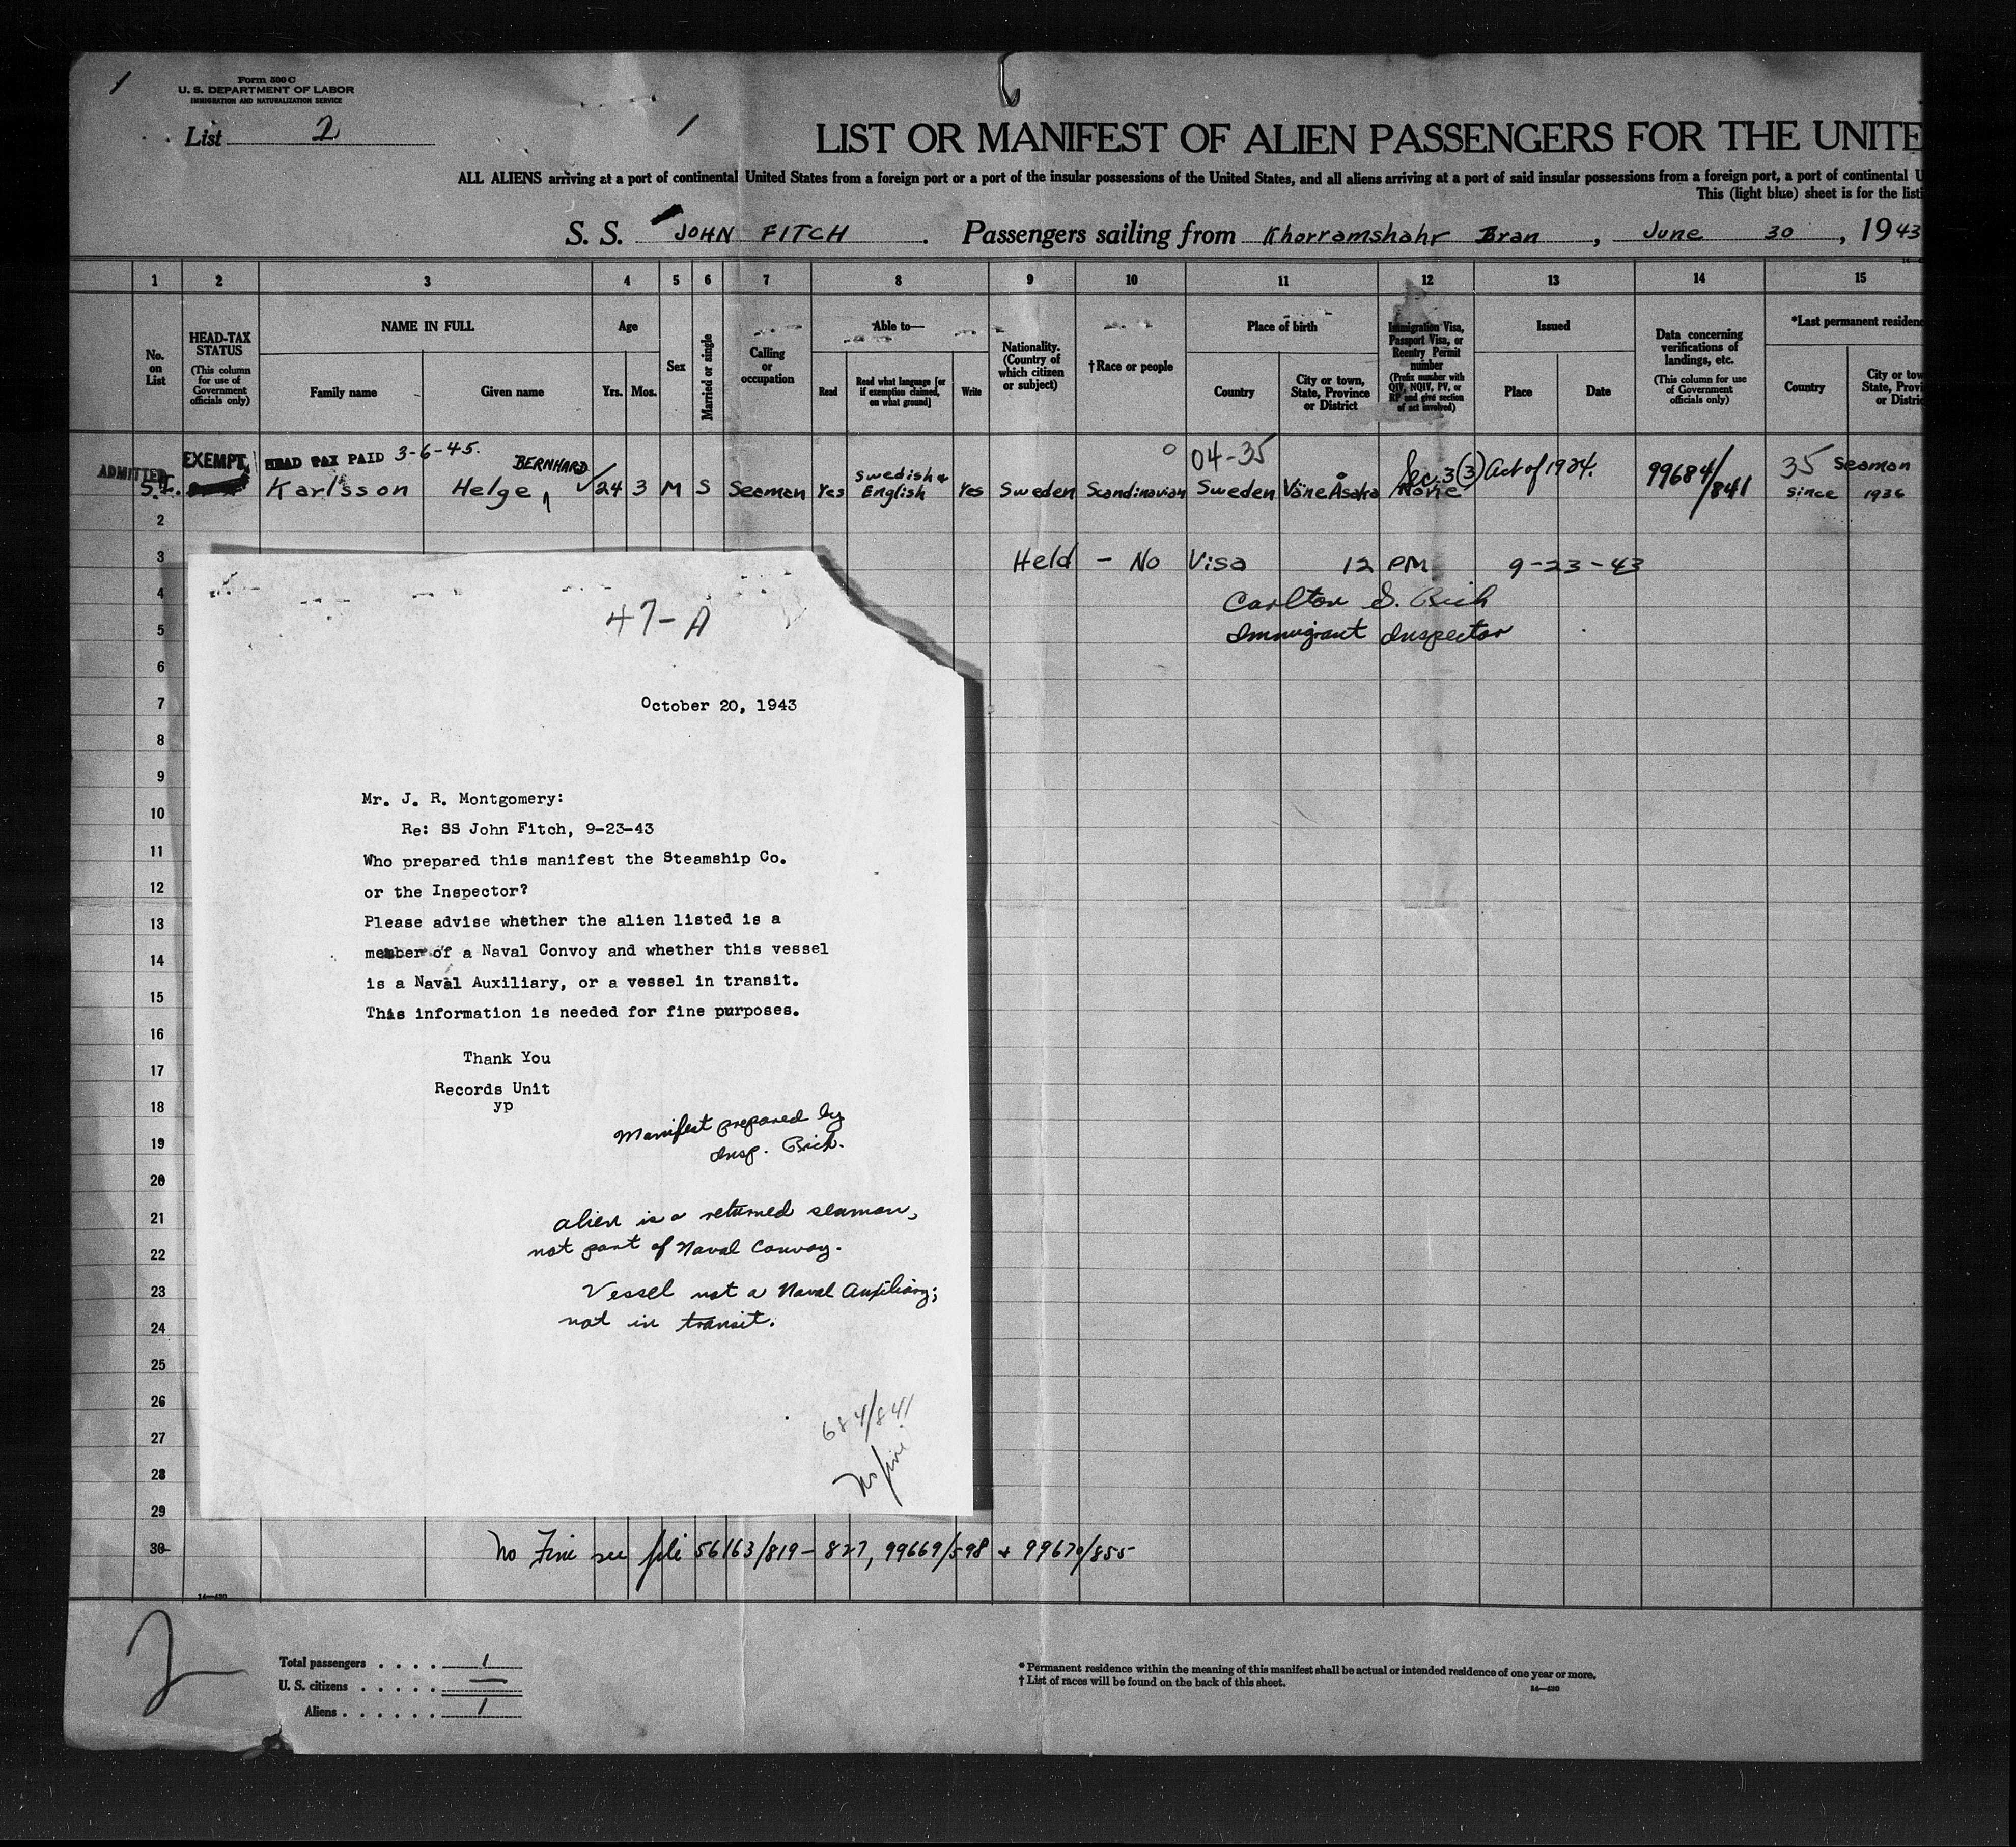 1
Form 500 C
U. S. DEPARTMENT OF LABOR
IMMIGRATION AND NATURALIZATION SERVICE
List 2
1
LIST OR MANIFEST OF ALIEN PASSENGERS FOR THE UNITE
ALL ALIENS arriving at a port of continental United States from a foreign port or a port of the insular possessions of the United States, and all aliens arriving at a port of said insular possessions from a foreign port, a port of continental U
This (light blue) sheet is for the listi
S. S. JOHN FITCH . Passengers sailing from Khorramshahr Iran , June 30 , 1943
1 2 3 4 5 6 7 8 9 10 11 12 13 14 15
No. on List
HEAD-TAX STATUS
(This column for use of Government officials only)
NAME IN FULL
Family name
Given name
Age
Yrs.
Mos.
Sex
Married or single
Calling or occupation
Able to—
Read
Read what language [or if exemption claimed, on what ground]
Write
Nationality. (Country of which citizen or subject)
†Race or people
Place of birth
Country
City or town, State, Province or District
Immigration Visa, Passport Visa, or Reentry Permit number
(Prefix number with QIV, NQIV, PV, or RP and give section of act involved)
Issued
Place
Date
Data concerning verifications of landings, etc.
(This column for use of Government officials only)
*Last permanent residenc
Country
City or tow
State, Provi
or Distric
ADMITTED
S.I.
EXEMPT
HEAD TAX PAID 3-6-45.
BERNHARD
04-35
Sec. 3(3) Act of 1924.
Karlsson Helge 24 3 M S Seaman Yes Swedish & English Yes Sweden Scandinavian Sweden Väne Åsaka None 99684/841 35 Seaman
since 1936
2
3 Held - No Visa 12 PM 9-23-43
4 Carlton S. Rich
5 Immigrant Inspector
6
7
8
9
10
11
12
13
14
15
16
17
18
19
20
21
22
23
24
25
26
27
28
29
30
47-A
October 20, 1943
Mr. J. R. Montgomery:
Re: SS John Fitch, 9-23-43
Who prepared this manifest the Steamship Co.
or the Inspector?
Please advise whether the alien listed is a
member of a Naval Convoy and whether this vessel
is a Naval Auxiliary, or a vessel in transit.
This information is needed for fine purposes.
Thank You
Records Unit
yp
Manifest prepared by
Insp. Rich.
Alien is a returned seaman,
not part of Naval Convoy.
Vessel not a Naval Auxiliary;
not in transit.
684/841
No fine
No Fine see file 56163/819-827, 99669/598 + 99670/855
14—480
2
Total passengers . . . . 1
U. S. citizens . . . . . —
Aliens . . . . . . 1
* Permanent residence within the meaning of this manifest shall be actual or intended residence of one year or more.
† List of races will be found on the back of this sheet.
14—480